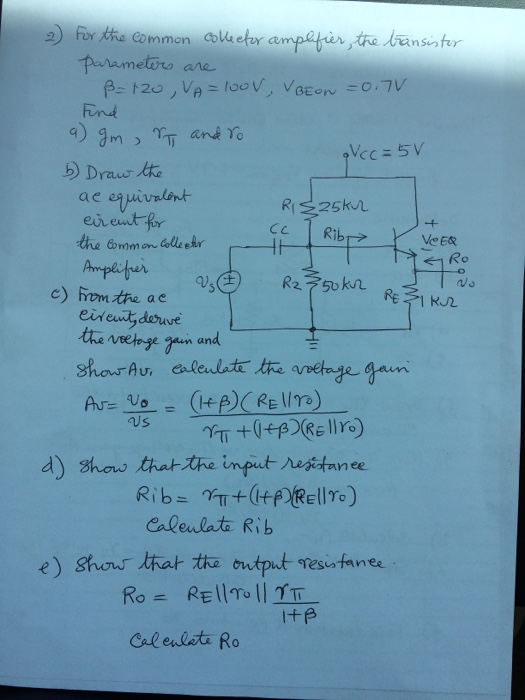 2) For the common collector amplifier, the transistor
parameters are
β = 120, VA = 100V, VBEON = 0.7V
Find
a) gm, rπ and ro
b) Draw the
ac equivalent
circuit for
the common collector
Amplifier
c) From the ac
circuit, derive
the voltage gain and
Show Av, calculate the voltage gain
Av = vo/vs = (1+β)(RE||ro) / rπ + (1+β)(RE||ro)
d) Show that the input resistance
Rib = rπ + (1+β)(RE||ro)
Calculate Rib
e) Show that the output resistance.
Ro = RE||ro|| rπ/1+β
Calculate Ro
VCC = 5V
R1 25kΩ
CC
Rib
+
VCEQ
Ro
vs
±
R2 50kΩ
RE 1KΩ
vo